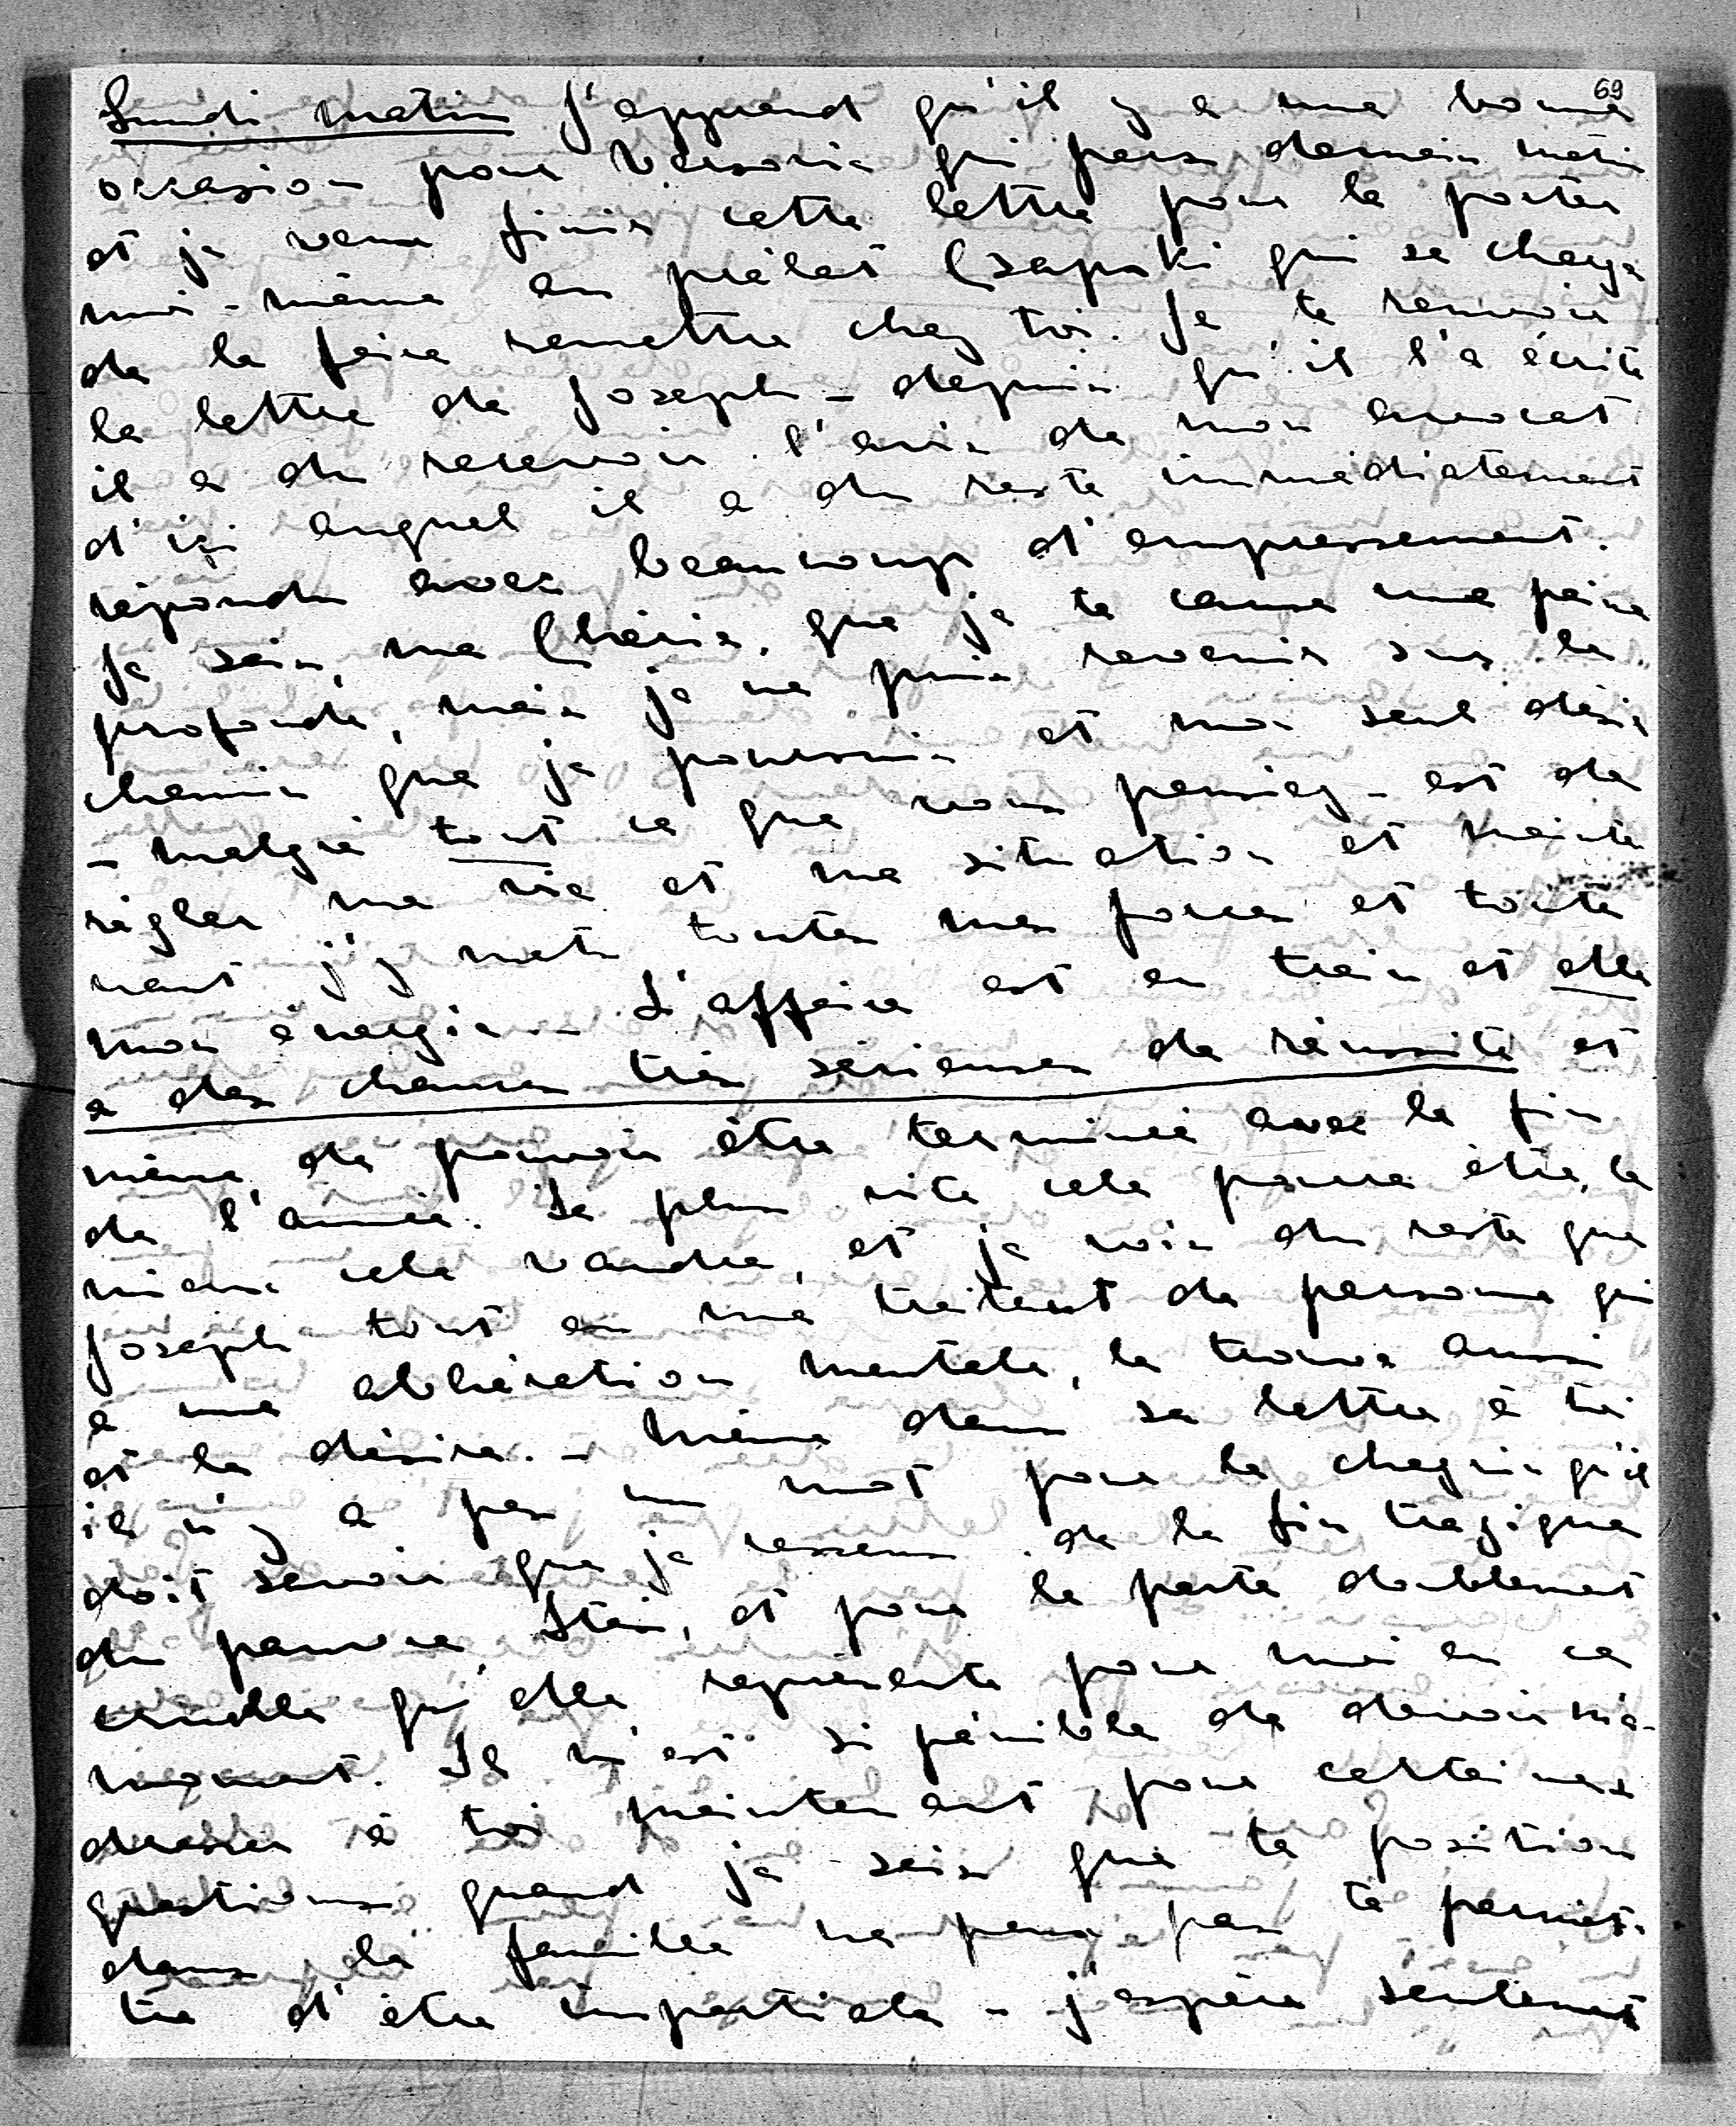 69
Lundi matin J'apprend qu'il y a une bonne
occasion pour Varsovie qui part demain matin
et je veux finir cette lettre pour la porter
moi-même au prélat Czapski qui se charge
de la faire remettre chez toi. Je te renvoie
la lettre de Joseph – depuis qu'il l'a écrite
il a du recevoir l'avis de mon avocat
d'ici auquel il a du reste immédiatement
répondu avec beaucoup d'empressement.
Je sais, ma Chérie, que je te cause une peine
profonde, mais je ne puis revenir sur le
chemin que je poursuis et mon seul désir
– malgré tout ce que vous pensiez – est de
régler ma vie et ma situation et mainte
nant j'y mets toutes mes forces et toute
mon énergie. – L'affaire est en train et elle
a des chances très sérieuses de réussite et
même de pouvoir être terminée avec la fin
de l'année. Le plus vite cela pourra être, le
mieux cela vaudra, et je vois du reste que
Joseph tout en me traitant de personne qui
a une abbération mentale, le trouve aussi
et le désire. – Même dans sa lettre à toi
il n'y a pas un mot pour le chagrin qu'il
doit savoir que je ressens de la fin tragique
du pauvre Staś, et pour la perte doublement
cruelle qu'elle représente pour moi en ce
moment. Il m'est si pénible de devoir m'a-
dresser à toi maintenant pour certaines
questions quand je sais que ta position
dans la famille ne peux pas te permet-
tre d'être impartiale – j'espère seulement